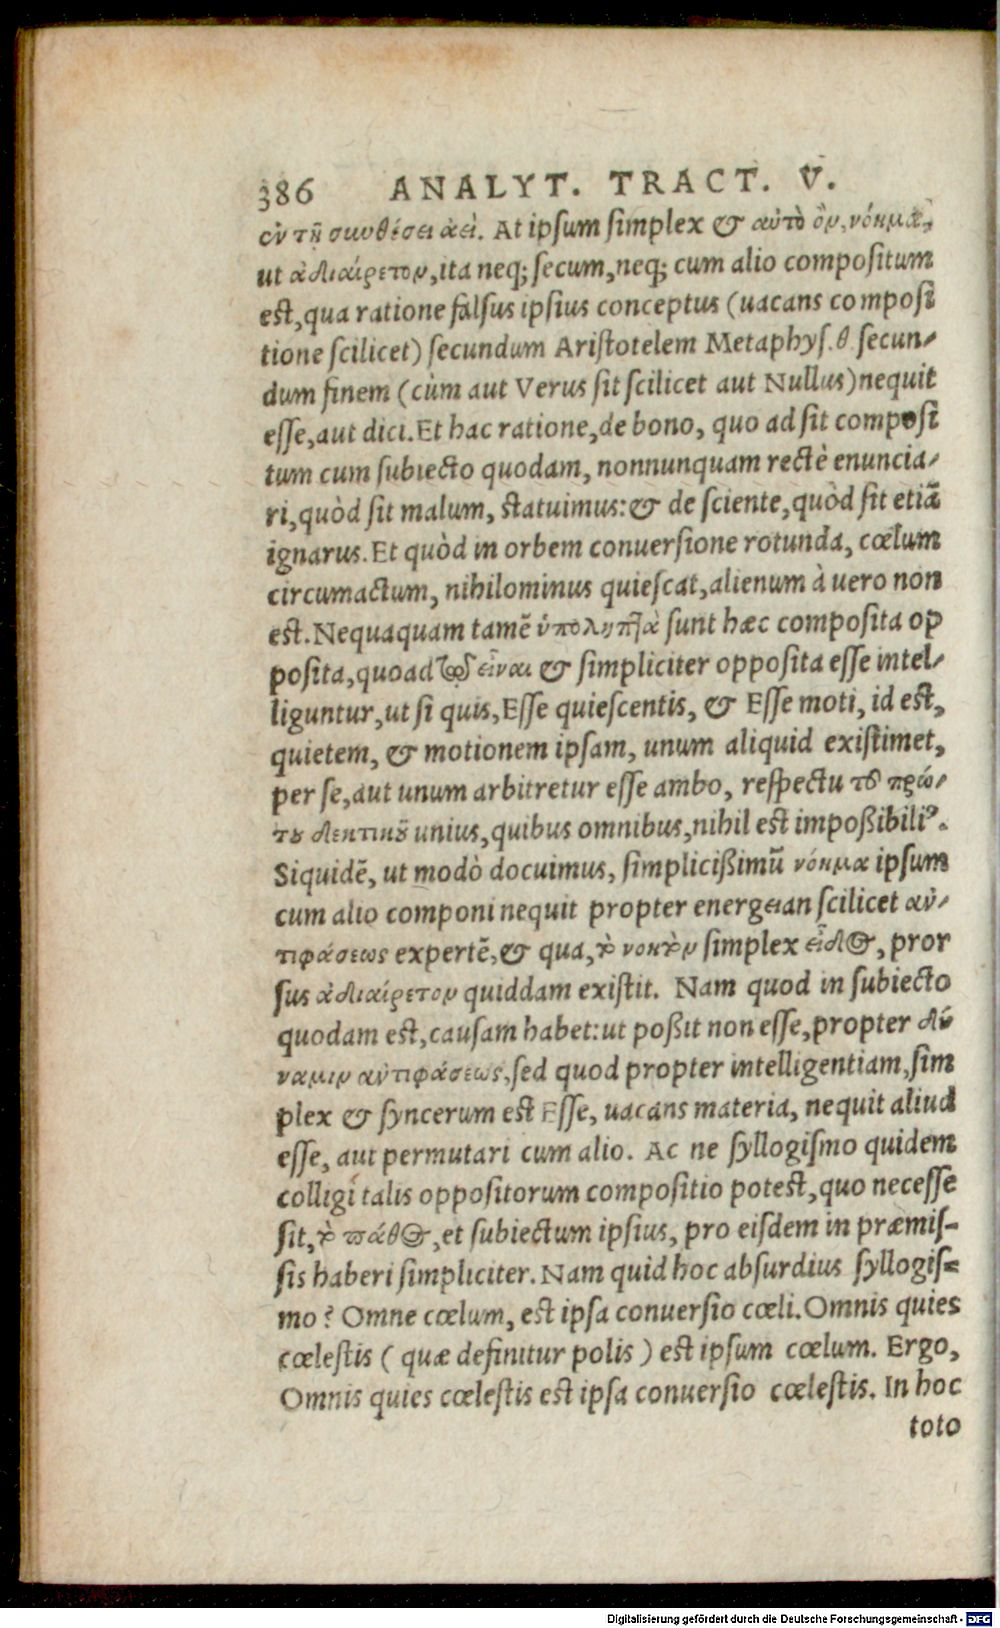 386 ANALYT. TRACT. V.
ἐν τῇ συνθέσει ἀεὶ. At ipsum simplex & αὐτὸ ὂν, νόημα,
ut ἀδιαίρετον, ita neq; secum, neq; cum alio compositum
est, qua ratione falsus ipsius conceptus (uacans composi
tione scilicet) secundum Aristotelem Metaphys. θ. secun-
dum finem (cùm aut Verus sit scilicet aut Nullus) nequit
esse, aut dici. Et hac ratione, de bono, quo ad sit composi
tum cum subiecto quodam, nonnunquam rectè enuncia-
ri, quòd sit malum, statuimus: & de sciente, quòd sit etiã
ignarus. Et quòd in orbem conuersione rotunda, cœlum
circumactum, nihilominus quiescat, alienum à uero non
est. Nequaquam tamẽ ὑποληπτὰ sunt hæc composita op
posita, quoad τῷ εἶναι & simpliciter opposita esse intel-
liguntur, ut si quis, Esse quiescentis, & Esse moti, id est,
quietem, & motionem ipsam, unum aliquid existimet,
per se, aut unum arbitretur esse ambo, respectu τοῦ πρώ-
του δεκτικοῦ unius, quibus omnibus, nihil est impoßibiliꝰ.
Siquidẽ, ut modò docuimus, simplicißimũ νόημα ipsum
cum alio componi nequit propter energeian scilicet ἀν-
τιφάσεως expertẽ, & qua, τὸ νοητὸν simplex εἶδος, pror
sus ἀδιαίρετον quiddam existit. Nam quod in subiecto
quodam est, causam habet: ut poßit non esse, propter δύ
ναμιν ἀντιφάσεως, sed quod propter intelligentiam, sim
plex & syncerum est Esse, uacans materia, nequit aliud
esse, aut permutari cum alio. Ac ne syllogismo quidem
colligi talis oppositorum compositio potest, quo necesse
sit, τὸ πάθος, et subiectum ipsius, pro eisdem in præmis-
sis haberi simpliciter. Nam quid hoc absurdius syllogis=
mo? Omne cœlum, est ipsa conuersio cœli. Omnis quies
cœlestis ( quæ definitur polis ) est ipsum cœlum. Ergo,
Omnis quies cœlestis est ipsa conuersio cœlestis. In hoc
toto
Digitalisierung gefördert durch die Deutsche Forschungsgemeinschaft - DFG